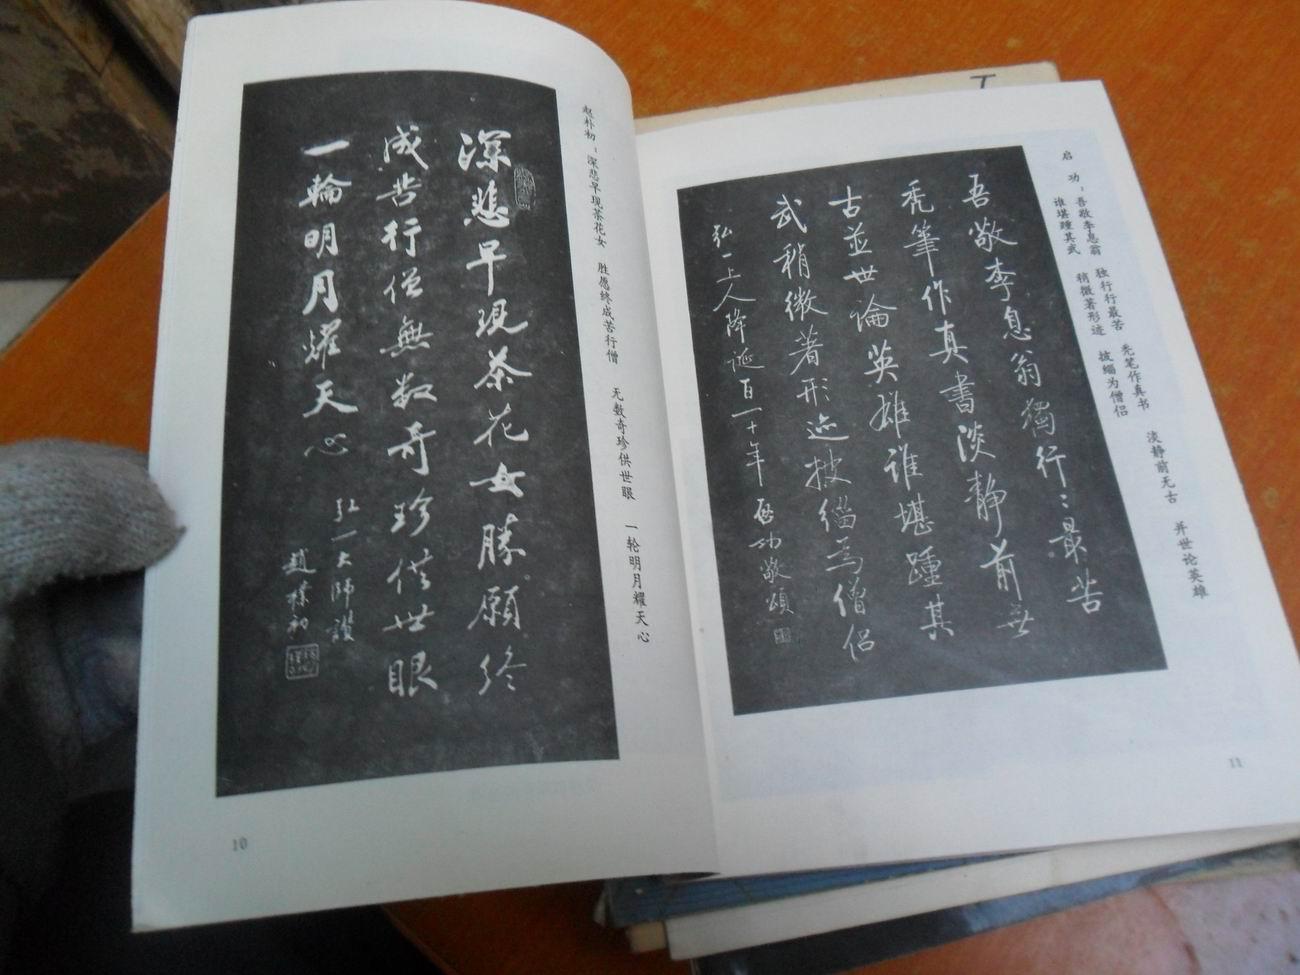 深悲早现茶花女勝願终
成苦行僧無数奇珍供世眼
一輪明月耀天心
弘一大師讚
趙樸初
赵朴初：深悲早现茶花女　胜愿终成苦行僧　无数奇珍供世眼　一轮明月耀天心
10
启　功：吾敬李息翁　独行行最苦　秃笔作真书　淡静前无古　并世论英雄
谁堪踵其武　稍微著形迹　披缁为僧侣
吾敬李息翁獨行〻最苦
秃筆作真書淡静前無
古並世論英雄谁堪踵其
武稍微著形迹披缁為僧侣
弘一上人降诞百一十年 启功敬頌
11